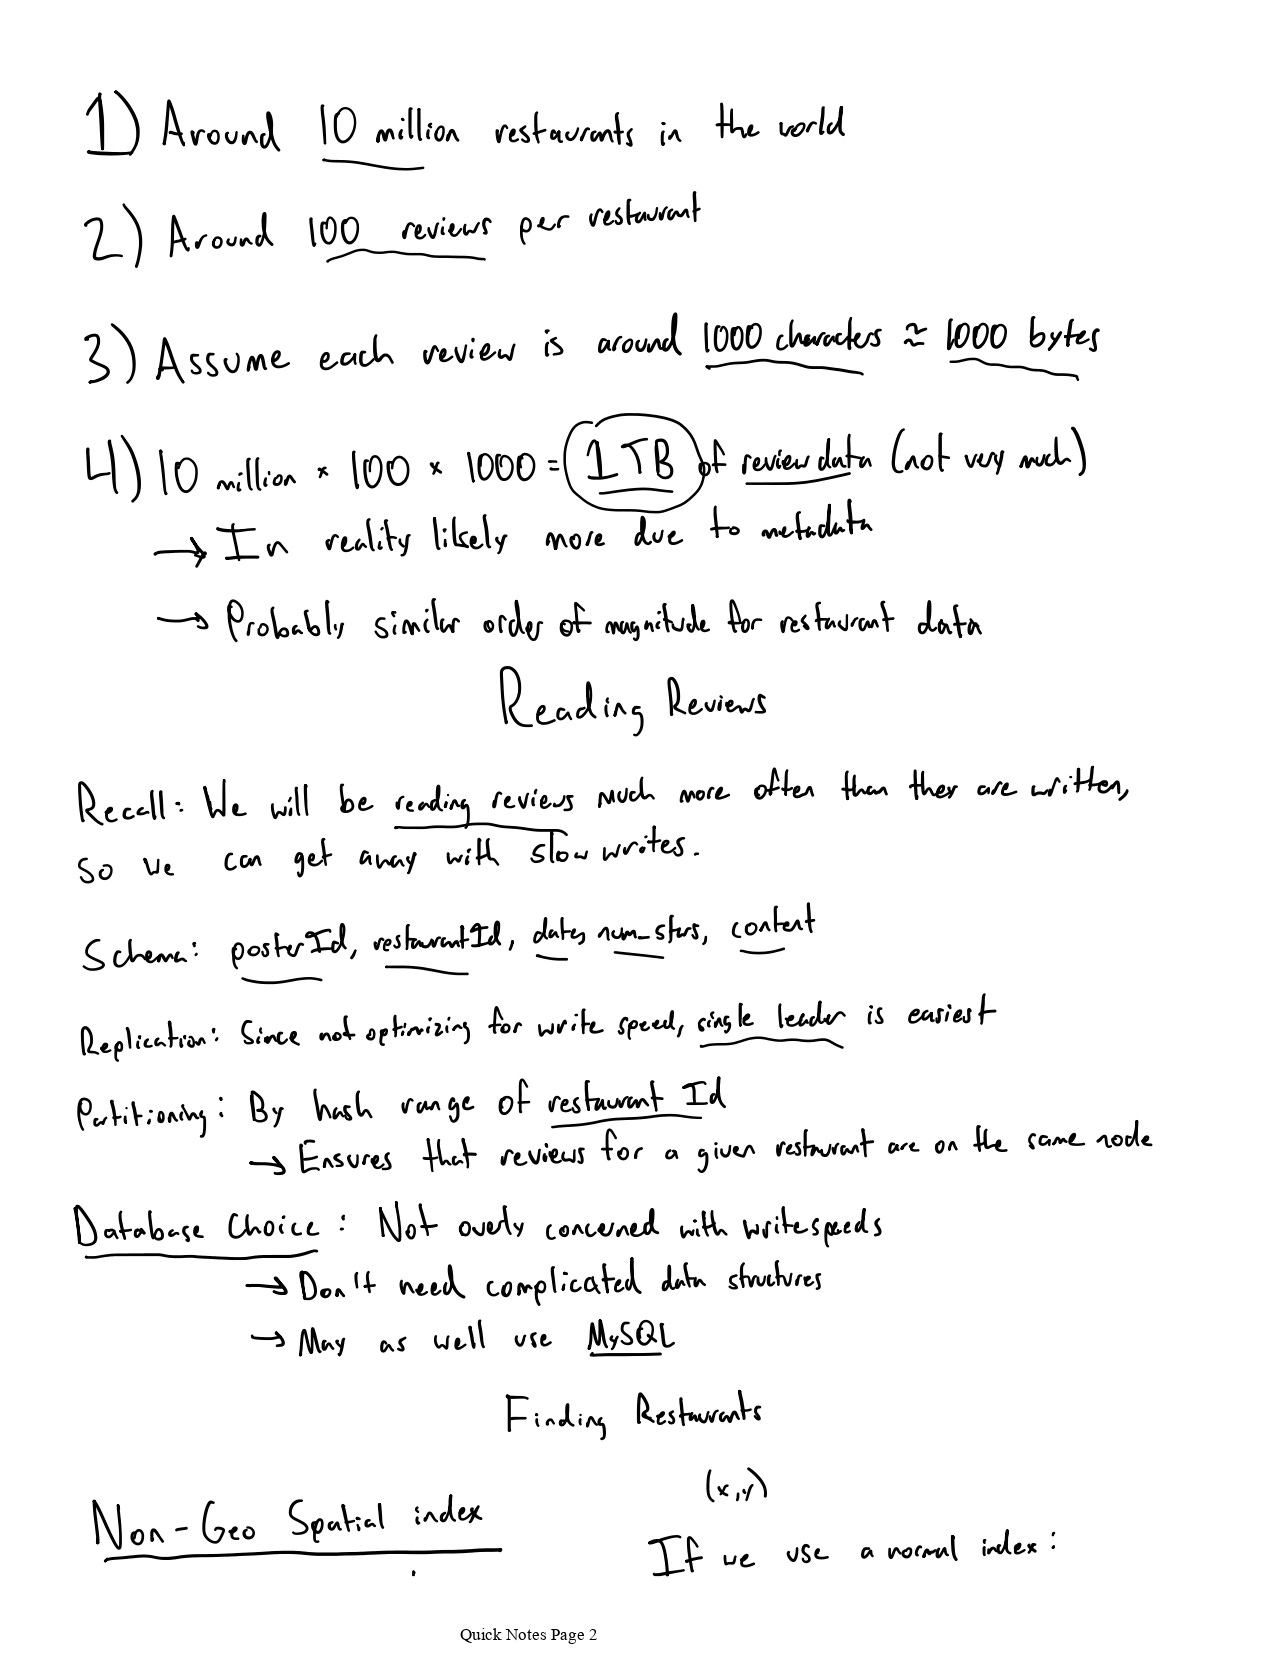 1) Around 10 million restaurants in the world
2) Around 100 reviews per restaurant
3) Assume each review is around 1000 characters ≈ 1000 bytes
4) 10 million × 100 × 1000 = 1TB of review data (not very much)
→ In reality likely more due to metadata
→ Probably similar order of magnitude for restaurant data
Reading Reviews
Recall: We will be reading reviews much more often than they are written,
so we can get away with slow writes.
Schema: posterId, restaurantId, date, num_stars, content
Replication: Since not optimizing for write speed, single leader is easiest
Partitioning: By hash range of restaurant Id
→ Ensures that reviews for a given restaurant are on the same node
Database Choice: Not overly concerned with write speeds
→ Don't need complicated data structures
→ May as well use MySQL
Finding Restaurants
(x,y)
Non-Geo Spatial index
If we use a normal index:
Quick Notes Page 2